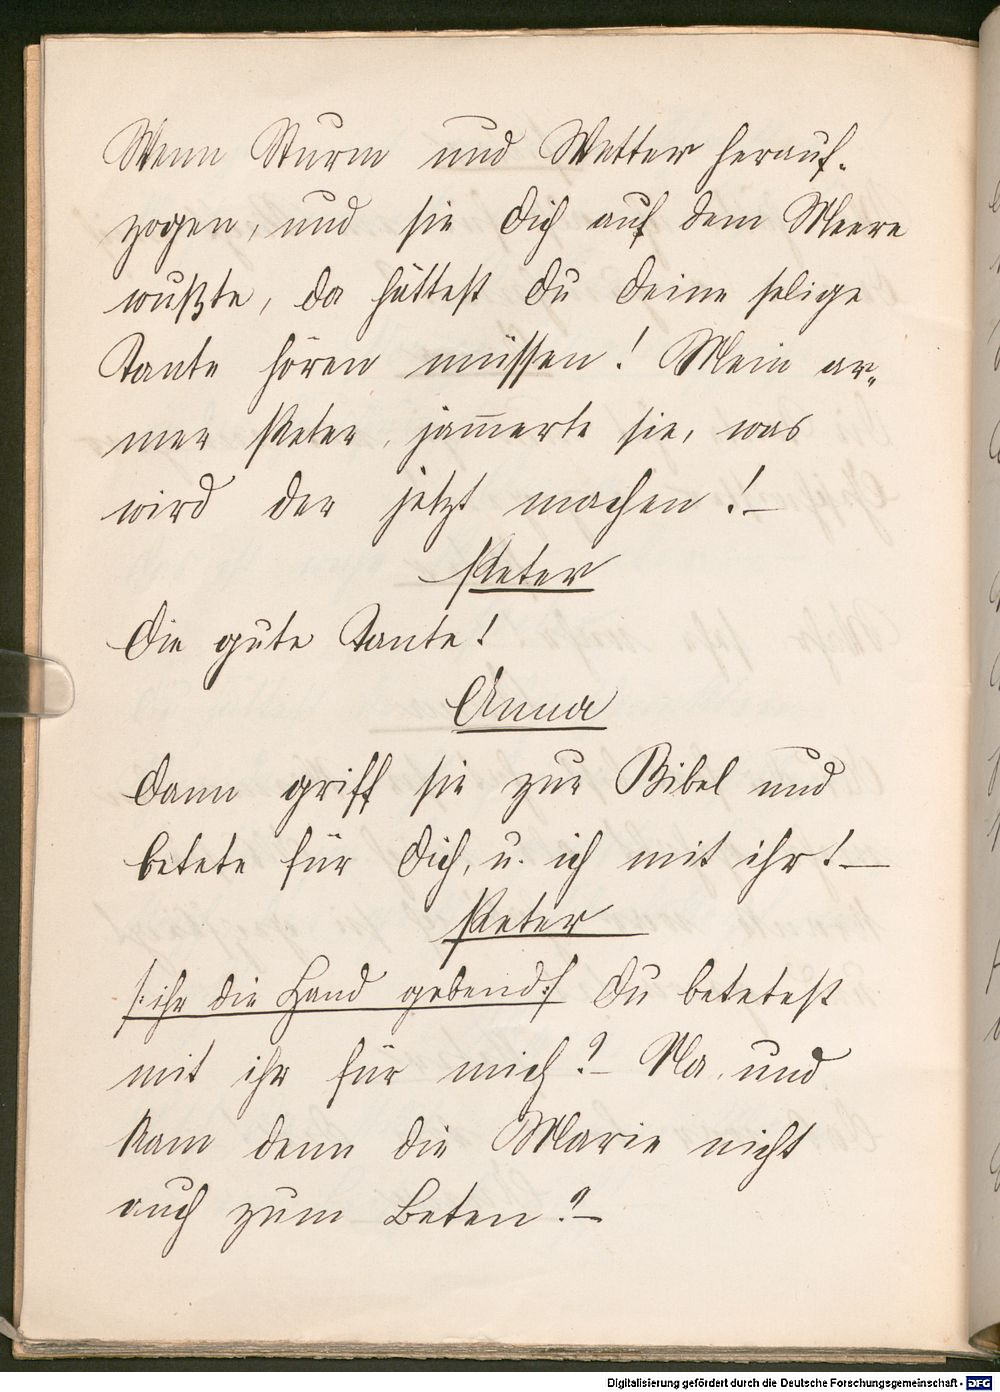 Wenn Sturm und Wetter herauf-
zogen, und sie Dich auf dem Meere
wußte, da hättest Du Deine selige
Tante hören müssen! Mein ar-
mer Peter, jam̄erte sie, was
wird der jetzt machen! –
Peter
Die gute Tante!
Anna
Dann griff sie zur Bibel und
betete für Dich, u. ich mit ihr! –
Peter
/: ihr die Hand gebend :/ Du betetest
mit ihr für mich? – Na, und
kam denn die Marie nicht
auch zum Beten? –
Digitalisierung gefördert durch die Deutsche Forschungsgemeinschaft - DFG